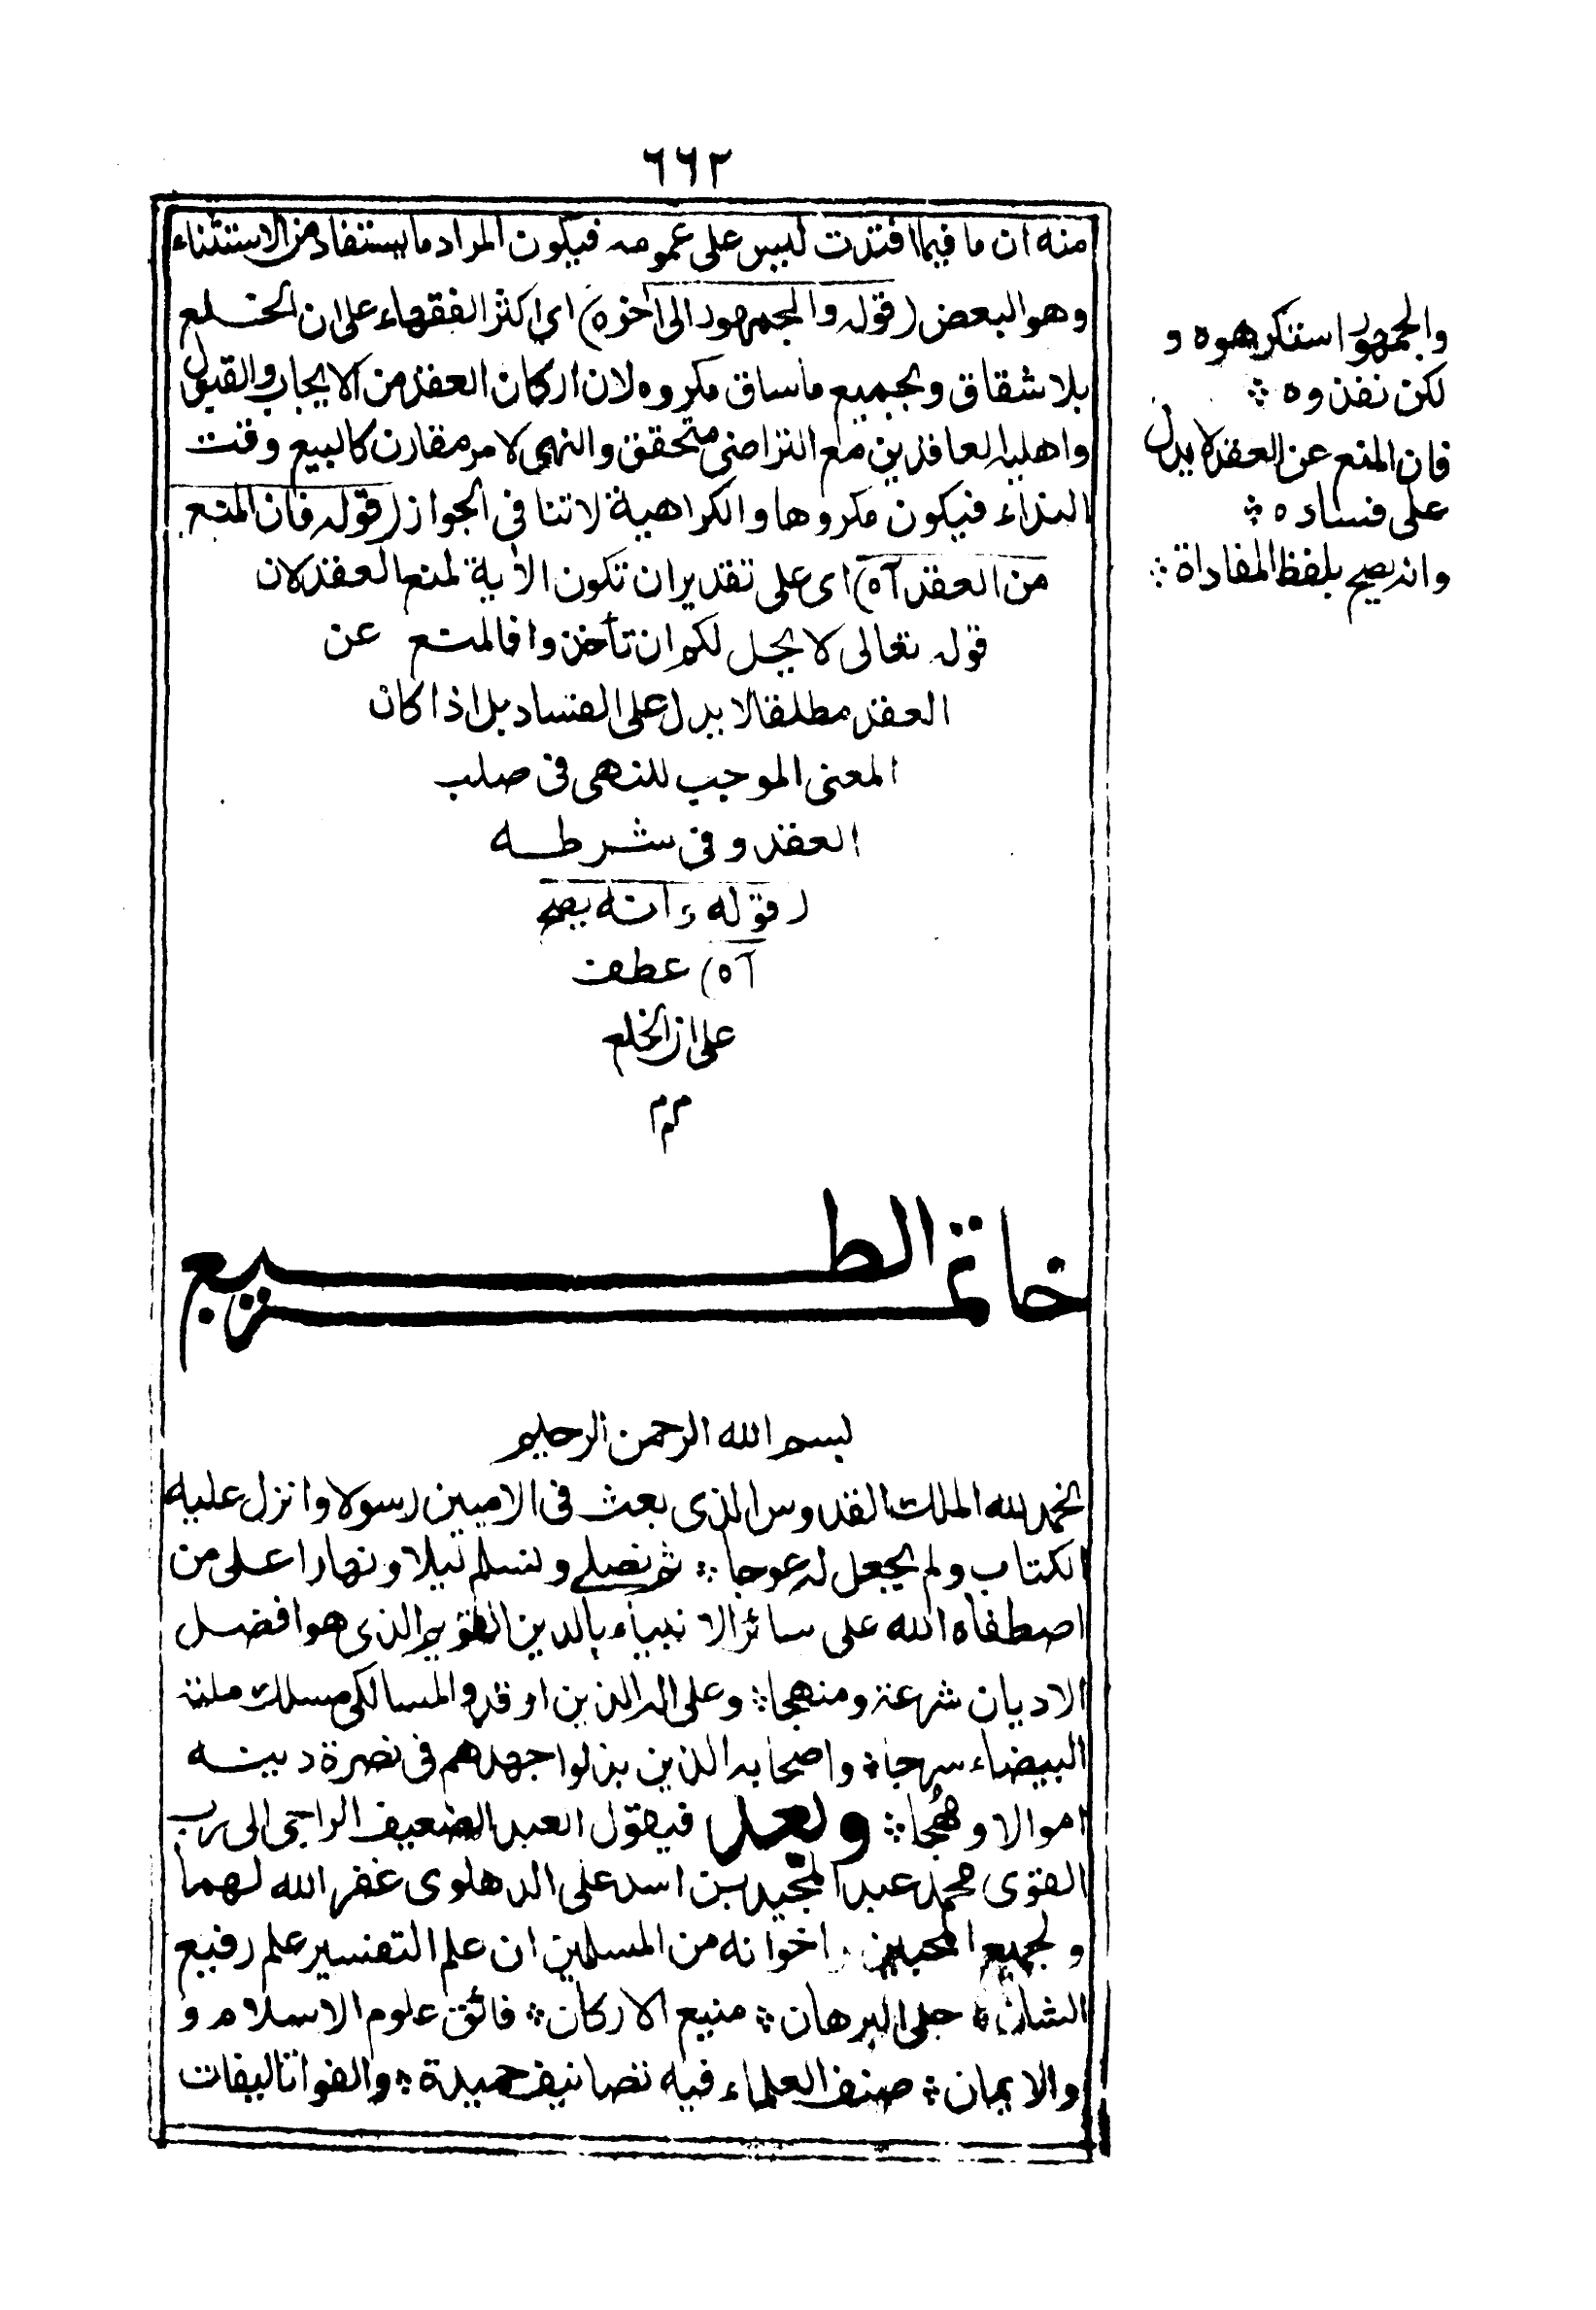 ٦٦٢
منه ان ما فيما افتدت ليس على عمومه فيكون المراد ما يستفاد من الاستثناء
وهو البعض (قوله والجمهور الى اخره) اى اكثر الفقهاء على ان الخلع
بلا شقاق وبجميع ما ساق مكروه لان اركان العقد من الايجاب والقبول
واهلية العاقدين مع التراضى متحقق والنهى لامر مقارن كالبيع وقت
النداء فيكون مكروها والكراهية لا تنافى الجواز (قوله فان المنع
من العقد آه) اى على تقدير ان تكون الآية لمنع العقد لان
قوله تعالى لا يحل لكم ان تأخذوا فالمنع عن
العقد مطلقا لا يدل على الفساد بل اذا كان
المعنى الموجب للنهى فى صلب
العقد وفى شرطه
(قوله وانه يصح
آه) عطف
على ان الخلع
والجمهور استكرهوه و
لكن نفذوه ⁘
فان المنع عن العقد لا يدل
على فساده ⁘
وانه يصح بلفظ المفاداة ⁘
خاتمة الطبع
بسم الله الرحمن الرحيم
الحمد لله الملك القدوس الذى بعث فى الاميين رسولا وانزل عليه
الكتاب ولم يجعل له عوجا ⁘ ثم نصلى ونسلم ليلا ونهارا على من
اصطفاه الله على سائر الانبياء بالدين القويم الذى هو افضل
الاديان شرعة ومنهجا ⁘ وعلى اله الذين اوقدوا لمسالكى مسلك ملته
البيضاء سرجا ⁘ واصحابه الذين بذلوا جهدهم فى نصرة دينه
اموالا ومُهجا ⁘ وبعد فيقول العبد الضعيف الراجى الى رب
القوى محمد عبد المجيد بن اسد على الدهلوى غفر الله لهما
ولجميع المحبين اخوانه من المسلمين ان علم التفسير علم رفيع
الشان ⁘ جلى البرهان ⁘ منيع الاركان ⁘ فائق علوم الاسلام و
والايمان ⁘ صنف العلماء فيه تصانيف حميدة ⁘ والفوا تاليفات